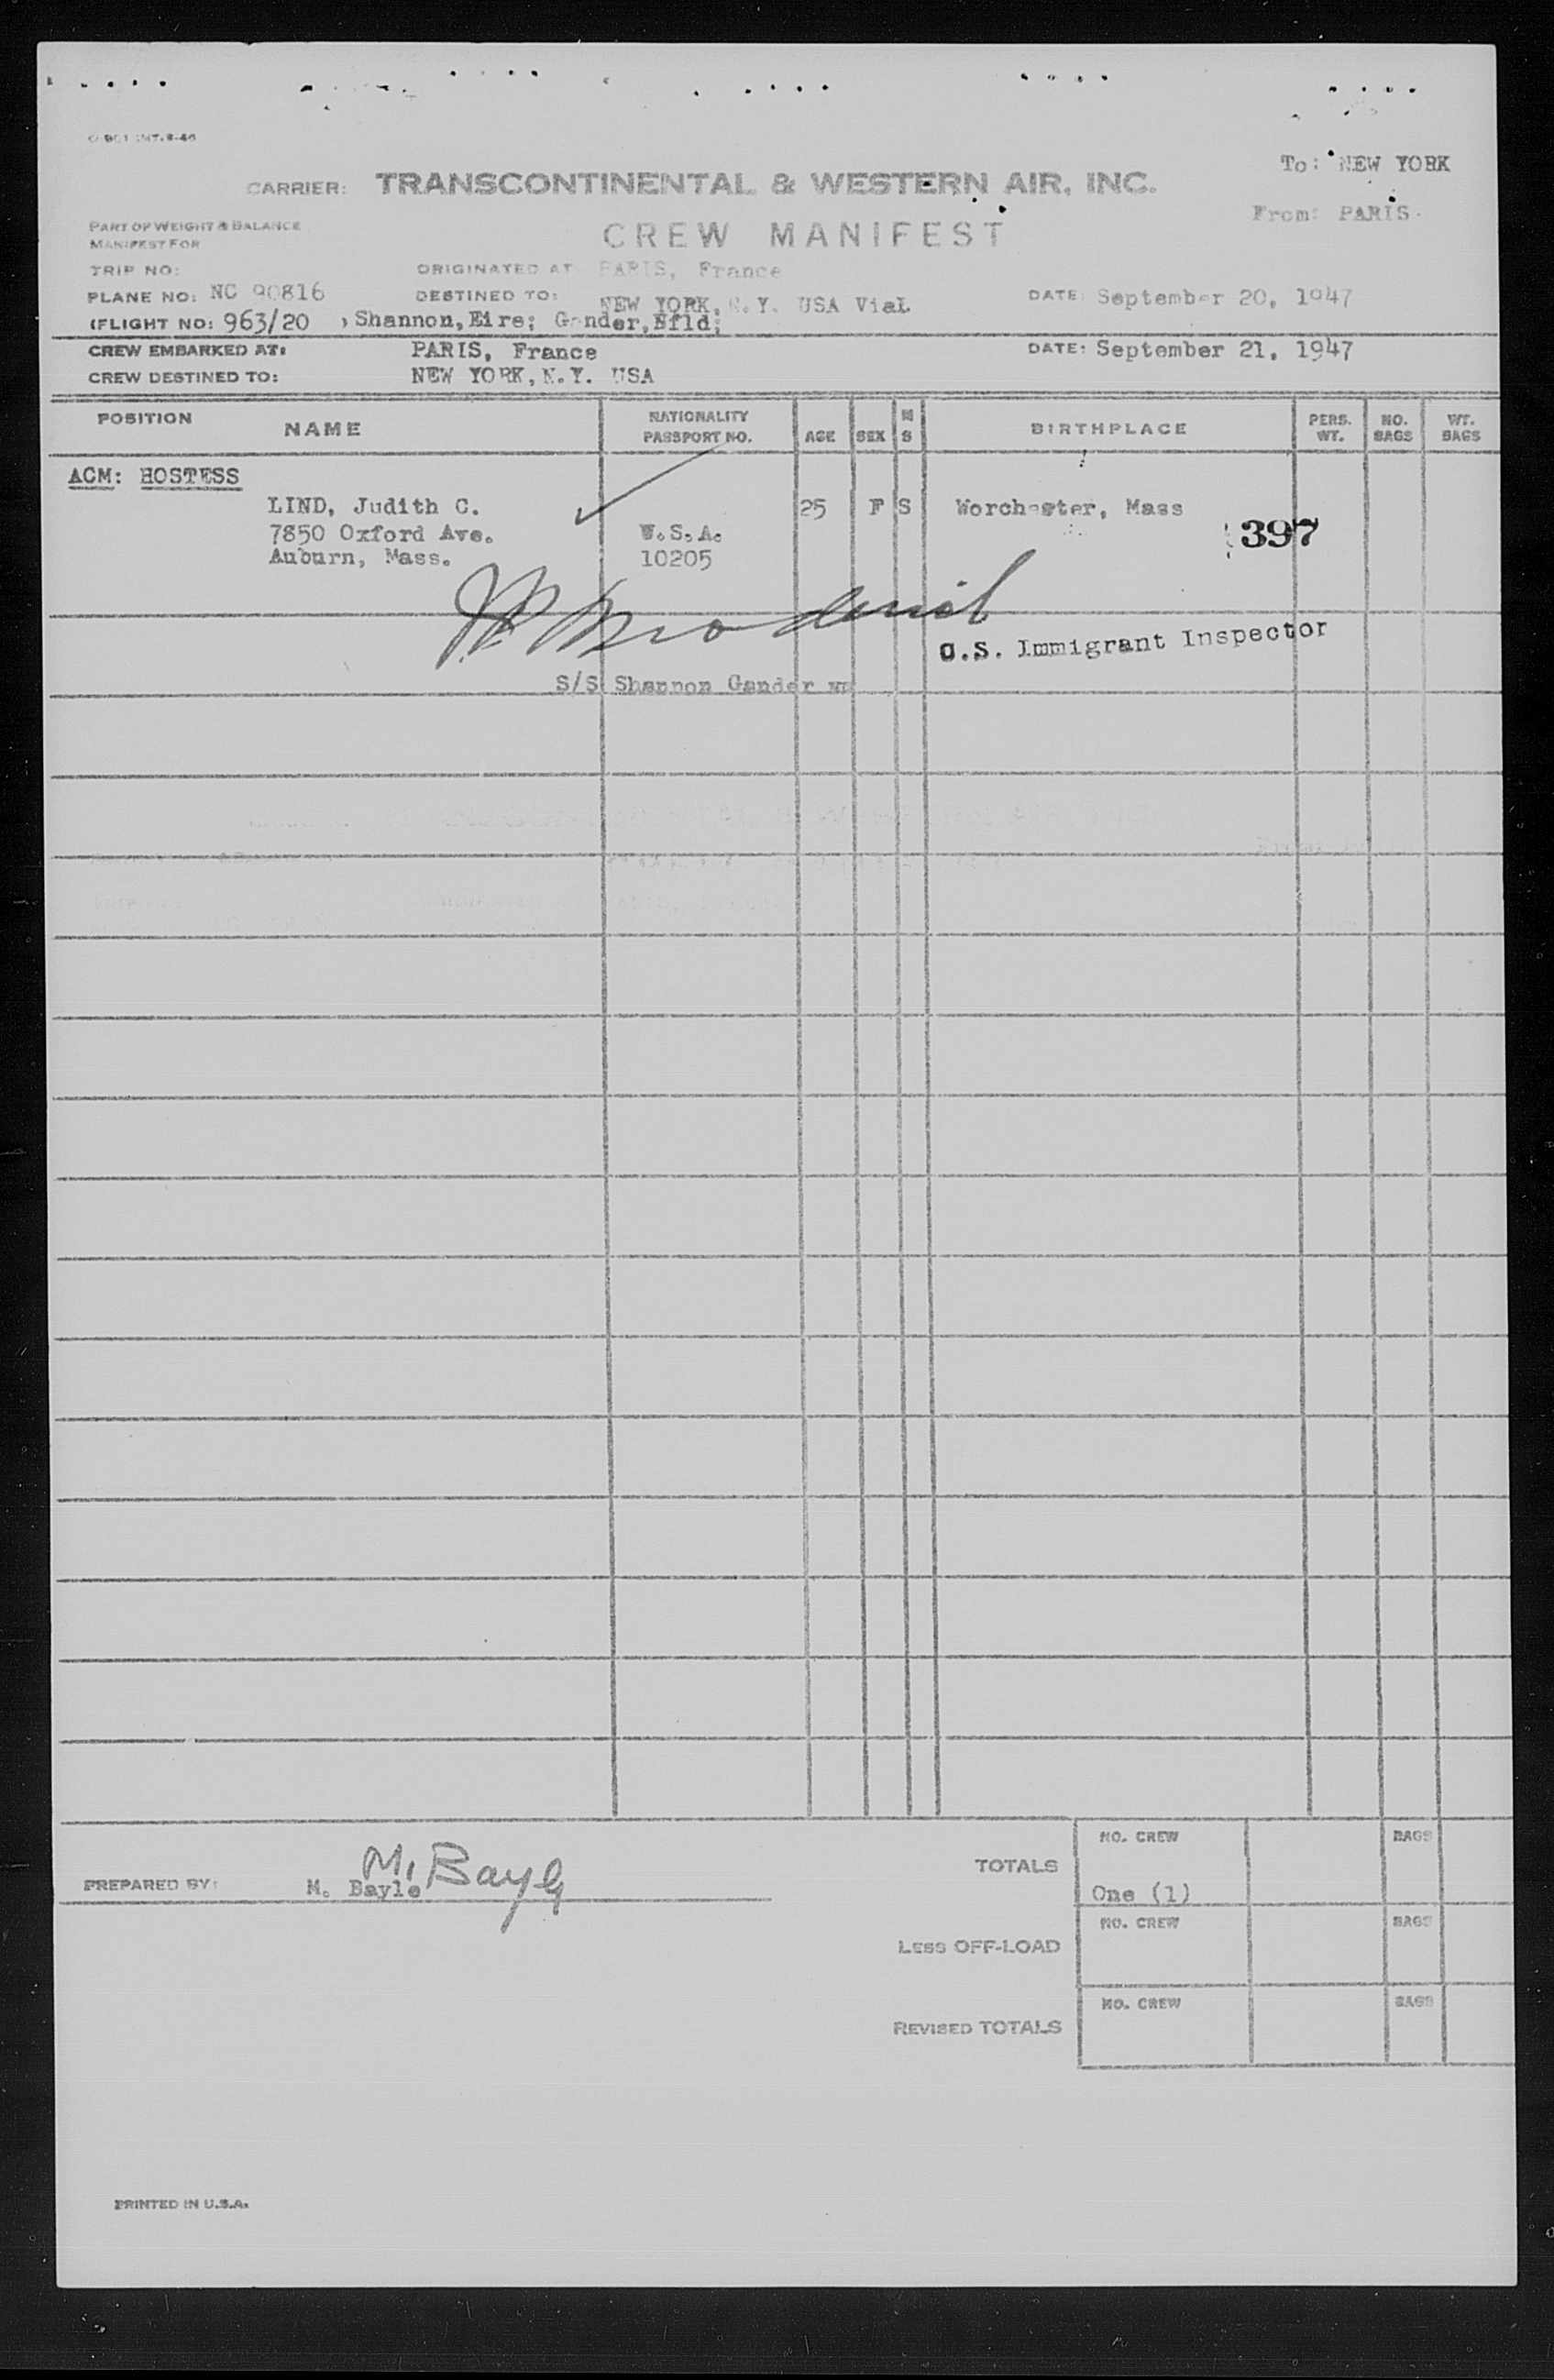 To: NEW YORK
CARRIER: TRANSCONTINENTAL & WESTERN AIR, INC.
From: PARIS.
PART OF WEIGHT & BALANCE
CREW MANIFEST
MANIFEST FOR
TRIP NO: ORIGINATED AT PARIS, France
PLANE NO: NC 90816 DESTINED TO: NEW YORK, N.Y. USA Via: DATE: September 20, 1947
(FLIGHT NO: 963/20 , Shannon, Eire; Gander, Nfld;
CREW EMBARKED AT: PARIS, France DATE: September 21, 1947
CREW DESTINED TO: NEW YORK, N.Y. USA
POSITION NAME NATIONALITY PASSPORT NO. AGE SEX M S BIRTHPLACE PERS. WT. NO. BAGS WT. BAGS
ACM: HOSTESS
LIND, Judith C. 25 F S Worchester, Mass
7850 Oxford Ave. U.S.A. 397
Auburn, Mass. 10205
U.S. Immigrant Inspector
S/S Shannon Gander
NO. CREW BAGS
TOTALS
M. Bayle
PREPARED BY: M. Bayle One (1)
NO. CREW BAGS
LESS OFF-LOAD
NO. CREW BAGS
REVISED TOTALS
PRINTED IN U.S.A.